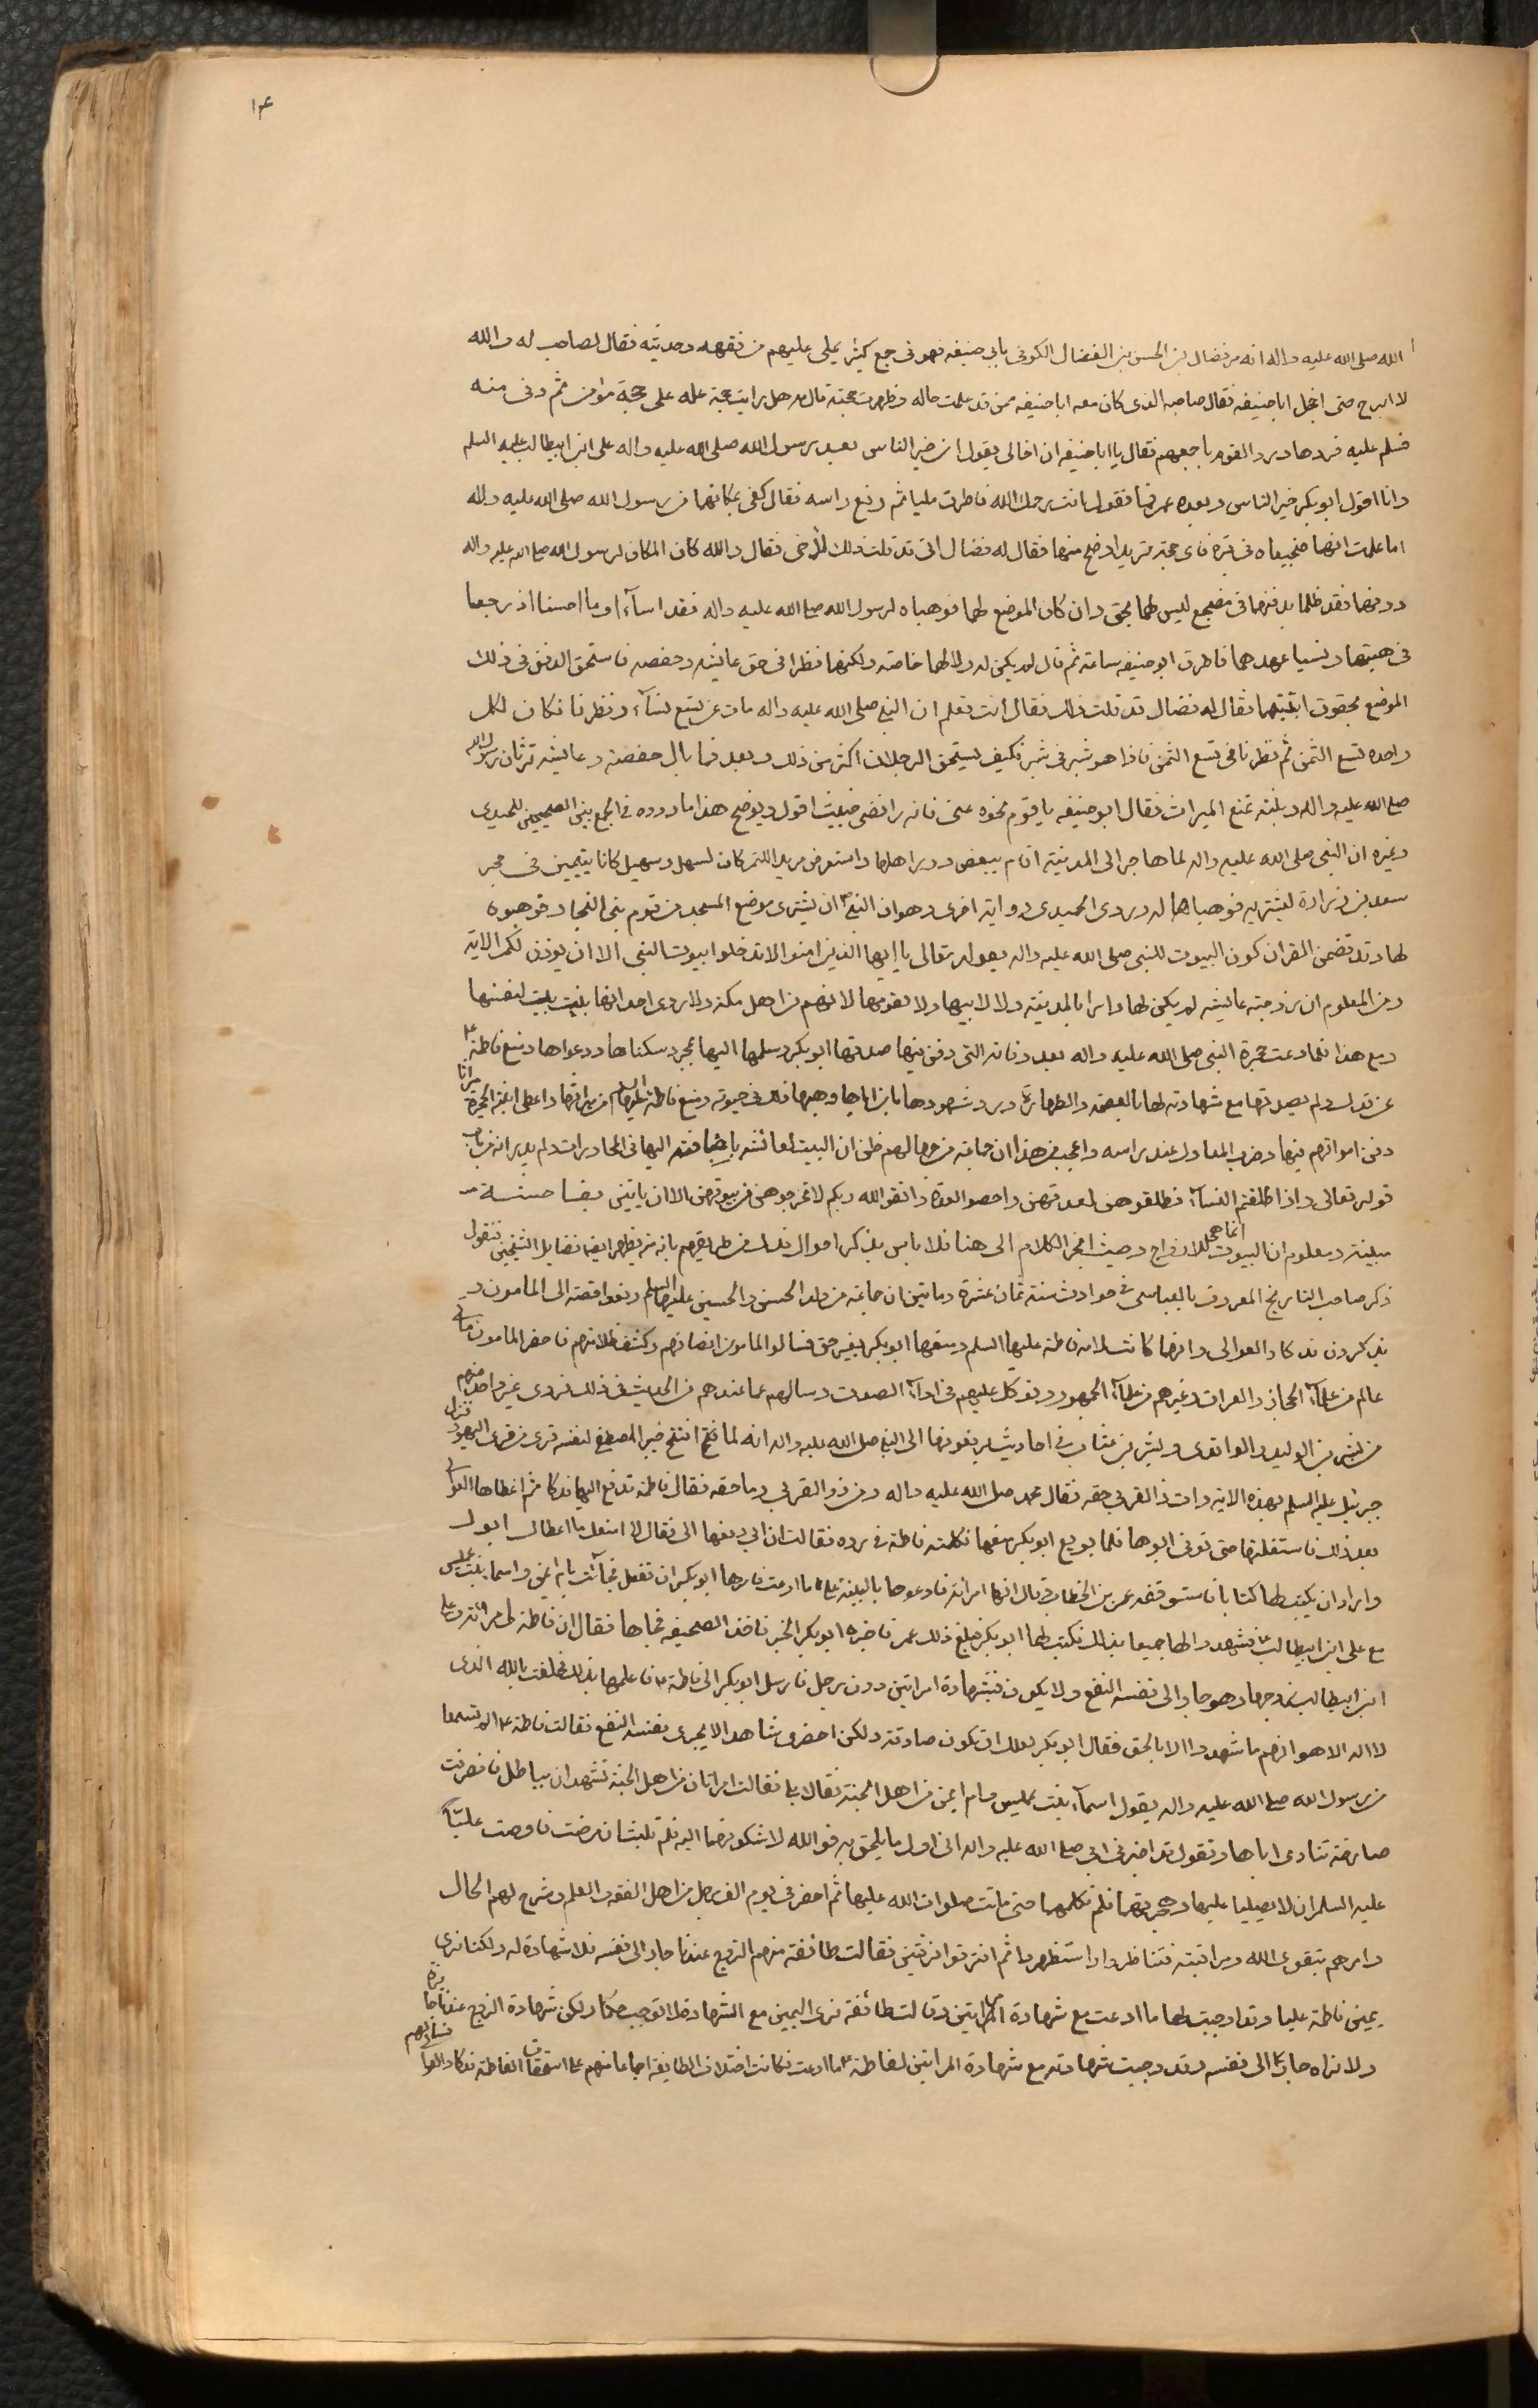 ١٤
الله صلى الله عليه واله انه مر فضال بن الحسن بن الفضال الكوفى بابى حنيفه فهو فى جمع كثير يملى عليهم من فقهه وحديثه فقال لصاحب له والله
لا ابرح حتى اخجل اباحنيفه فقال صاحبه الذى كان معه اباحنيفه ممن قد علمت حاله وظهرت حجته قال مه هل رايت حجة علت على حجة مؤمن ثم دنى منه
فسلم عليه فردها ورد القوم باجمعهم فقال يا اباحنيفه ان اخالى يقول ان خير الناس بعد رسول الله صلى الله عليه واله على ابن ابيطالب عليه السلم
وانا اقول ابوبكر خير الناس وبعده عمر فما تقول انت رحمك الله فاطرق مليا ثم رفع راسه فقال كفى بمكانهما من رسول الله صلى الله عليه واله
اما علمت انهما ضجيعاه فى قبره فاى حجة تريد اوضح منها فقال له فضال انى قد قلت ذلك لاخى فقال والله كان المكان لرسول الله صلى الله عليه واله
دونهما فقد ظلما بدفنهما فى مضجع ليس لهما بحق وان كان الموضع لهما فوهباه لرسول الله صلى الله عليه واله فقد اسآءا وما احسنا اذ رجعا
فى هبتهما ونسيا عهدهما فاطرق ابو حنيفه ساعة ثم قال لم يكن له ولا لهما خاصة ولكنهما نظرا فى حق عايشه وحفصه فاستحق الدفن فى ذلك
الموضع بحقوق ابنتيهما فقال له فضال قد قلت ذلك فقال انت تعلم ان النبى صلى الله عليه واله مات عن تسع نسآء ونظرنا فكان لكل
واحده تسع الثمن ثم نظرنا فى تسع الثمن فاذا هو شبر فى شبر فكيف يستحق الرجلان اكثر من ذلك وبعد فما بال حفصة وعايشه ترثان رسول الله
صلى الله عليه واله وبنته تمنع الميراث فقال ابو حنيفه يا قوم نحوه عنى فانه رافضى خبيث اقول ويوضح هذا ما ورده فى الجمع بين الصحيحين للحميدى
وغيره ان النبى صلى الله عليه واله لما هاجر الى المدينة اقام ببعض دور اهلها واستعرض مربد اللتمر كان لسهل وسهيل كانا يتيمين فى حجر
سعد بن زرارة ليشتريه فوهباهما له وروى الحميدى رواية اخرى وهو ان النبى ص ان يشترى موضع المسجد من قوم بنى النجار فوهبوه
لها وقد تضمن القران كون البيوت للنبى صلى الله عليه واله بقوله تعالى يا ايها الذين امنوا لا تدخلوا بيوت النبى الا ان يوذن لكم الاية
ومن المعلوم ان زوجته عايشه لم يكن لها دار بالمدينة ولا لابيها ولا لقومها لانهم من اهل مكة ولا روى احد انها بنت بيت لنفسها
ومع هذا فلما دعت حجرة النبى صلى الله عليه واله بعد وفاته التى دفن فيها صدقها ابوبكر وسلمها اليها بمجرد سكناها ودعواها ومنع فاطمة ع
عن فدك ولم يصدقها مع شهادته لها بالعصمة والطهارة ورد شهودها بان اباها وهبها ذلك فى حيوته ومنع فاطمة عليها السلم من ميراثها واعطى ابنته الحجرة ميراثا
ودفن امواتهم فيها وضرب المعاول عند راسه واعجب من هذا ان جماعة من جهالهم ظن ان البيت لعائشه باضافته اليها فى المحاورات ولم يدر انه من باب
قوله تعالى واذا طلقتم النسآء فطلقوهن لعدتهن واحصوا العدة واتقوا الله ربكم لا تخرجوهن من بيوتهن الا ان ياتين بفاحشة
مبينة ومعلوم ان البيوت انما هى للازواج وحيث انجر الكلام الى هنا فلا باس بذكر احوال فدك من طريقهم بانه من يظهر ايضا فضايل الشيخين فنقول
ذكر صاحب التاريخ المعروف بالعباسى فى حوادث سنة ثمان عشرة وماتين ان جماعة من ولد الحسن والحسين عليهما السلم رفعوا قصة الى المامون
يذكرون فدكا والعوالى وانها كانت لامه فاطمة عليها السلم ومنعها ابوبكر بغير حق فسالوا المامون انصافهم وكشف ظلامتهم فاحضر المامون ماتى
عالم من علمآء الحجاز والعراق وغيرهم من علمآء الجمهور وتوكل عليهم فى ادآء الصوت وسالهم عما عندهم من الحديث فى ذلك فروى غير واحد منهم
من بشر بن الوليد والواقدى وبشر بن عتاب فى احاديث يرفعونها الى النبى صلى الله عليه واله انه لما فتح خيبر اصطفى لنفسه قرى من قرى اليهود فنزل
جبرئيل عليه السلم بهذه الاية وات ذا القربى حقه فقال محمد صلى الله عليه واله ومن ذو القربى وما حقه فقال فاطمة تدفع اليها فدكا ثم اعطاها العوالى
بعد ذلك فاستغلتها حتى توفى ابوها فلما بويع ابوبكر منعها فكلمته فاطمة فى رده فقالت ان ابى دفعها الى فقال لا امنعك ما اعطاك ابوك
واراد ان يكتب لها كتابا فاستوقفه عمر بن الخطاب وقال انها امراة فادعوها بالبينة على ما ادعت فامرها ابوبكر ان تفعل فجآئت بام ايمن واسما بنت عميس
مع على ابن ابيطالب ع فشهدوا لها جميعا بذلك فكتب لها ابوبكر فبلغ ذلك عمر فاخبره ابوبكر الخبر فاخذ الصحيفه فمحاها فقال ان فاطمة امراة وعلى
ابن ابيطالب زوجها وهو جار الى نفسه النفع ولا يكون بشهادة امراتين دون رجل فارسل ابوبكر الى فاطمة ع فاعلمها بذلك فحلفت بالله الذى
لا اله الا هو انهم ما شهدوا الا بالحق فقال ابوبكر لعلك ان تكون صادقة ولكن احضرى شاهدا لا يجر الى نفسه النفع فقالت فاطمة ع الم تسمعا
من رسول الله صلى الله عليه واله يقول اسمآء بنت عميس وام ايمن من اهل الجنة فقالا بلى فقالت امراتان من اهل الجنة تشهدان بباطل فانصرفت
صارخة تنادى اباها وتقول قد اخبرنى ابى صلى الله عليه واله انى اول ما يلحق به فوالله لاشكونهما اليه فلم تلبث ان مرضت فاوصت عليّا
عليه السلم ان لا يصليا عليها وهجرتهما فلم تكلمهما حتى ماتت صلوات الله عليها ثم احضر فى يوم الف رجل من اهل الفقه والعلم وشرح لهم الحال
وامرهم بتقوى الله ومراقبته فتناظروا واستظهروا ثم افترقوا فرقتين فقالت طائفة منهم الزوج عندنا جار الى نفسه فلا شهادة له ولكنا نرى
يمين فاطمة عليها وقد اوجبت لها ما ادعت مع شهادة المراتين وقالت طائفة نرى اليمين مع الشهادة لا توجب حكما ولكن شهادة الزوج عندنا جايزة
ولا نراه جارا الى نفسه وقد وجبت شهادته مع شهادة المراتين لفاطمة ع ما ادعت فكانت اختلاف الطايفه اجماعا منهم على استحقاق الفاطمة فدكا والعوا